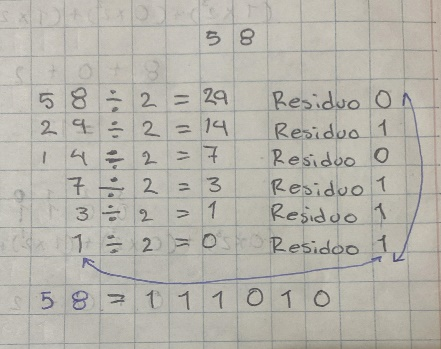 58
58 ÷ 2 = 29 Residuo 0
29 ÷ 2 = 14 Residuo 1
14 ÷ 2 = 7 Residuo 0
7 ÷ 2 = 3 Residuo 1
3 ÷ 2 = 1 Residuo 1
1 ÷ 2 = 0 Residuo 1
58 = 111010